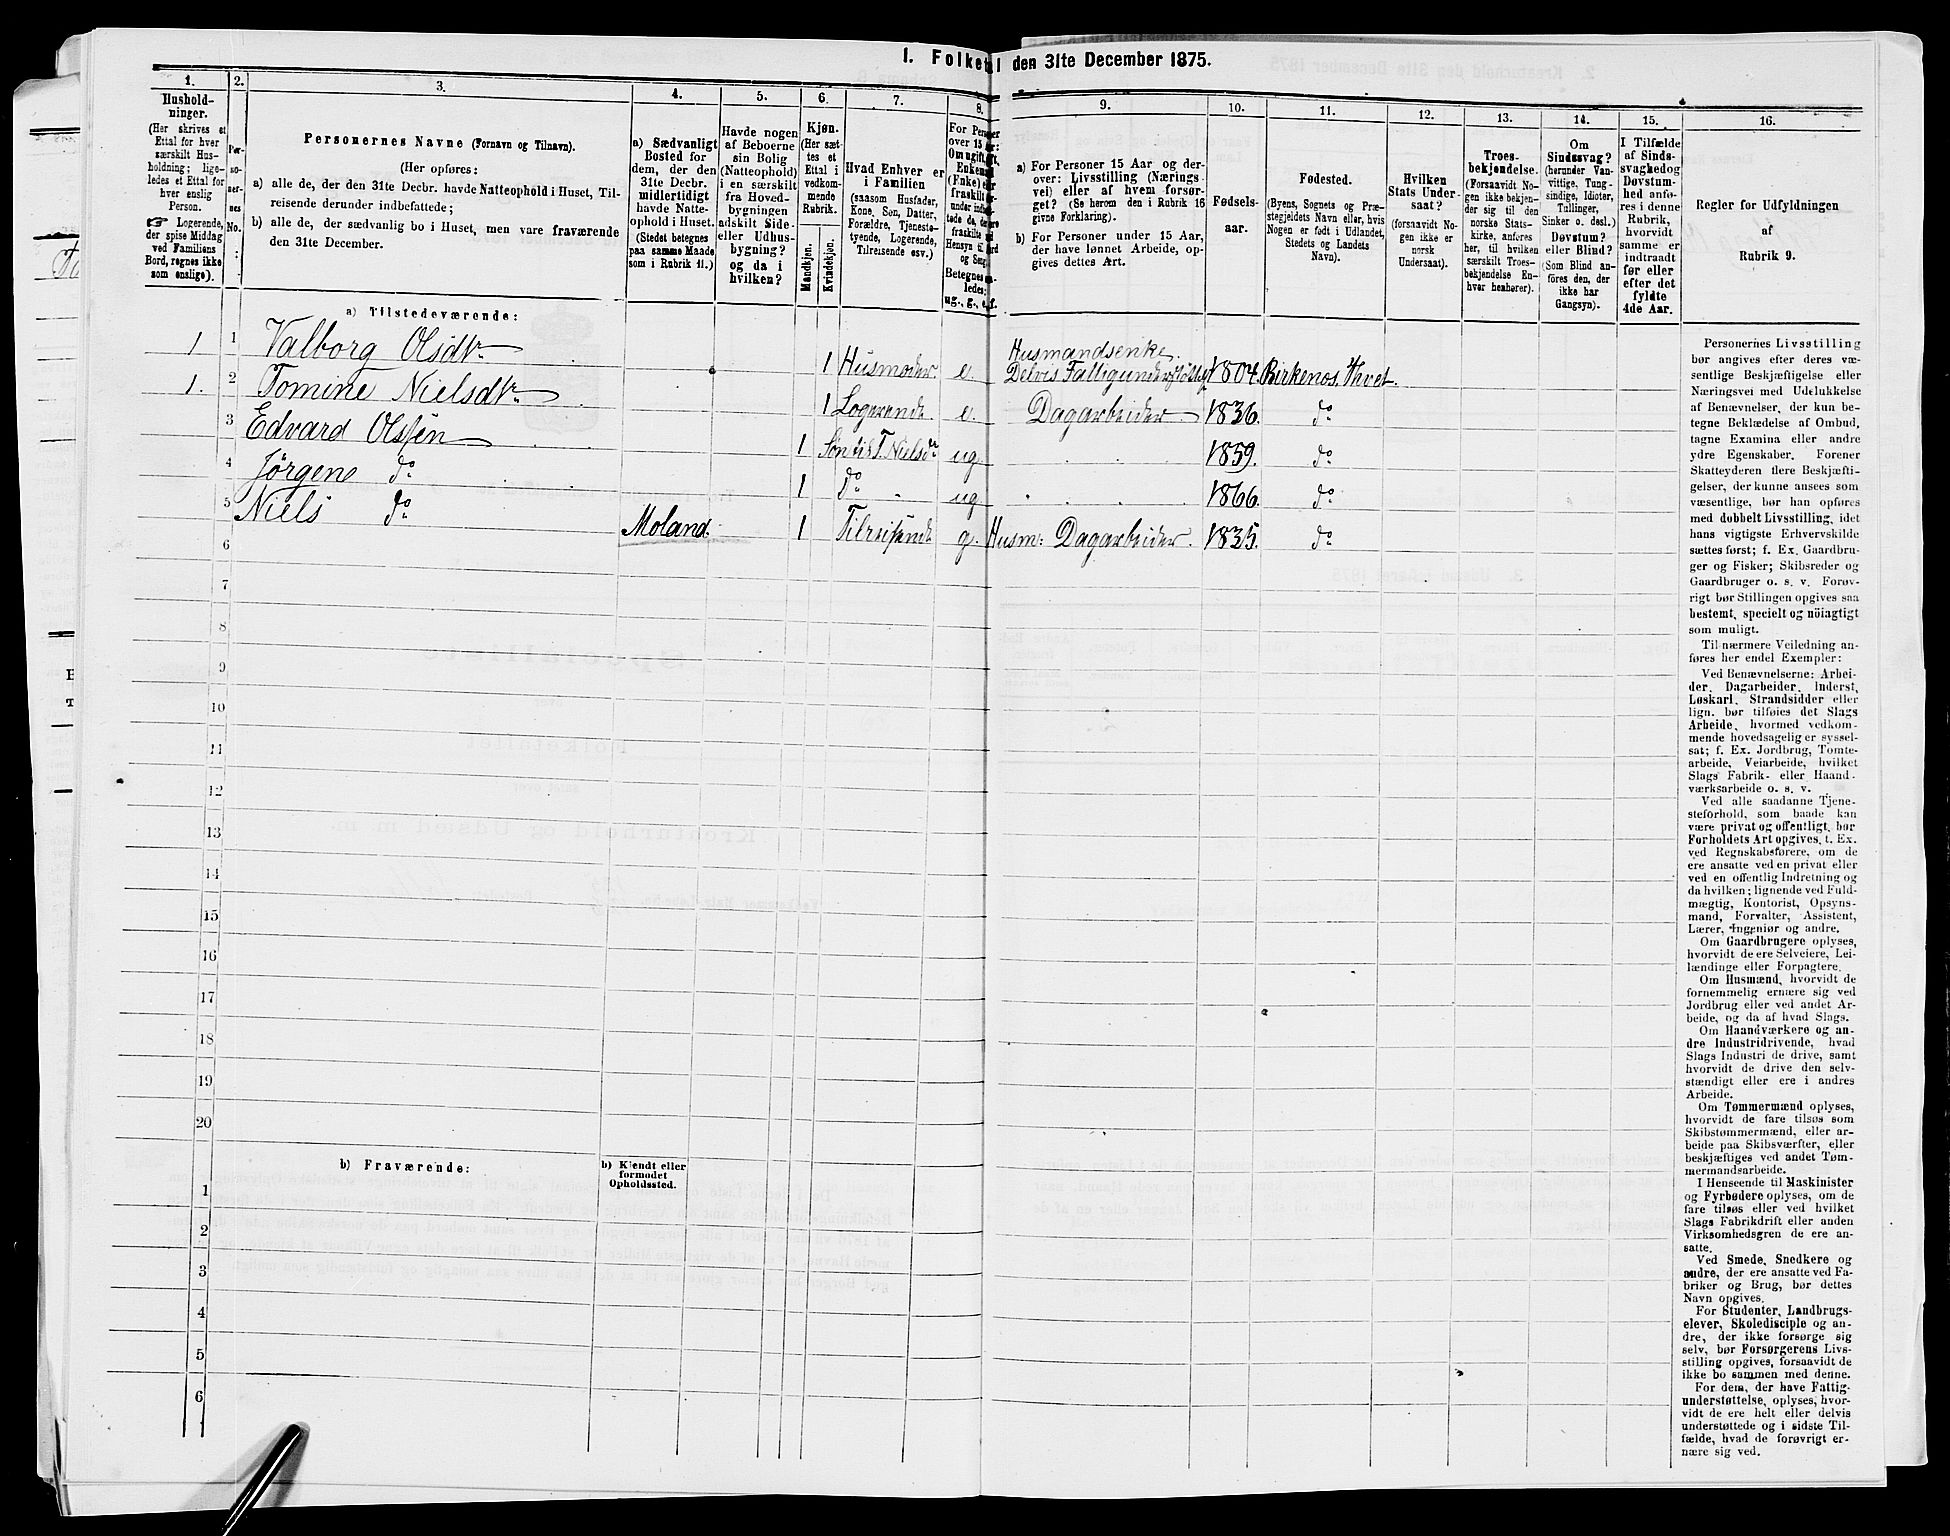 1. Folketal den 31te December 1875.
1.
Hushold-
ninger.
(Her skrives et
Ettal for hver
særskilt Hus-
holdning; lige-
ledes et Ettal for
hver enslig
Person.
☞ Logerende,
der spise Middag
ved Familiens
Bord, regnes ikke
som enslige).
2.
Per-
so-
ner-
nes
No.
3.
Personernes Navne (Fornavn og Tilnavn).
(Her opføres:
a) alle de, der den 31te Decbr. havde Natteophold i Huset, Til-
reisende derunder indbefattede;
b) alle de, der sædvanlig bo i Huset, men vare fraværende
den 31te December.
4.
a) Sædvanligt
Bosted for
dem, der den
31te Decbr.
midlertidigt
havde Natte-
ophold i Huset.
(Stedet betegnes
paa samme Maade
som i Rubrik 11.)
5.
Havde nogen
af Beboerne
sin Bolig
(Natteophold)
i en særskilt
fra Hoved-
bygningen
adskilt Side-
eller Udhus-
bygning?
og da i
hvilken?
6.
Kjøn.
(Her sæt-
tes et
Ettal i
vedkom-
mende
Rubrik.
Mandkjøn.
Kvindekjøn.
7.
Hvad Enhver er
i Familien
(saasom Husfader,
Kone, Søn, Datter,
Forældre, Tjeneste-
tyende, Logerende,
Tilreisende osv.)
8.
For Personer
over 15 Aar:
Om ugift, gift,
Enkemand
(Enke) eller
fraskilt
Betegnes saa-
ledes:
ug., g., e., f.
9.
a) For Personer 15 Aar og der-
over: Livsstilling (Nærings-
vei) eller af hvem forsør-
get? (Se herom den i Rubrik 16
givne Forklaring).
b) For Personer under 15 Aar,
der have lønnet Arbeide, op-
gives dettes Art.
10.
Fødsels-
aar.
11.
Fødested.
(Byens, Sognets og Præ-
stegjeldets Navn eller, hvis
Nogen er født i Udlandet,
Stedets og Landets
Navn).
12.
Hvilken
Stats Under-
saat?
(forsaavidt No-
gen ikke er
norsk
Undersaat).
13.
Troes-
bekjendelse.
(Forsaavidt No-
gen ikke bekjen-
der sig til den
norske Stats-
kirke, anføres
her, til hvilken
særskilt Troes-
bekjendelse En-
hver henhører).
14.
Om
Sindssvag?
(herunder Van-
vittige, Tung-
sindige, Idioter,
Tullinger,
Sinker o. desl.)
Døvstum?
eller Blind?
(Som Blind an-
føres den, der
ikke har
Gangsyn).
15.
I Tilfælde
af Sinds-
svaghed og
Døvstum-
hed anfø-
res i denne
Rubrik,
hvorvidt
samme er
indtraadt
før eller
efter det
fyldte
4de Aar.
16.
Regler for Udfyldningen
af
Rubrik 9.
a) Tilstedeværende:
1 1 Valborg Olsdtr 1 Husmoder. e. Husmandsenke.
Delvis Fattigunderstøttet 1804. Birkenæs. Hvet.
1. 2 Tomine Nielsdtr 1 Logerende e. Dagarbeider 1836. do
3 Edvard Olsen 1 Søn til T. Nielsdr ug. 1859. do
4 Jörgen do 1 Do ug. 1866. do
5 Niels do Moland. 1 Tilreisende g. Husm: Dagarbeider. 1835. do
6
7
8
9
10
11
12
13
14
15
16
17
18
19
20
b) Fraværende:
b) Kjendt eller
formodet
Opholdssted.
1
2
3
4
5
6
Personernes Livsstilling
bør angives efter deres væ-
sentlige Beskjæftigelse eller
Næringsvei med Udelukkelse
af Benævnelser, der kun be-
tegne Beklædelse af Ombud,
tagne Examina eller andre
ydre Egenskaber. Forener
Skatteyderen flere Beskjæfti-
gelser, der kunne ansees som
væsentlige, bør han opføres
med dobbelt Livsstilling, idet
hans vigtigste Erhvervskilde
sættes først; f. Ex. Gaardbru-
ger og Fisker; Skibsreder og
Gaardbruger o. s. v. Forøv-
rigt bør Stillingen opgives saa
bestemt, specielt og nöiagtigt
som muligt.
Til nærmere Veiledning an-
føres her endel Exempler:
Ved Benævnelserne: Arbei-
der, Dagarbeider, Inderst,
Løskarl, Strandsidder eller
lign. bør tilføies det Slags
Arbeide, hvormed vedkom-
mende hovedsagelig er syssel-
sat; f. Ex. Jordbrug, Tomte-
arbeide, Veiarbeide, hvilket
Slags Fabrik- eller Haand-
værksarbeide o. s. v.
Ved alle saadanne Tjene-
steforhold, som baade kan
være privat og offentligt, bør
Forholdets Art opgives, t. Ex.
ved Regnskabsførere, om de
ere ansatte ved en privat eller
ved en offentlig Indretning og
da hvilken; lignende ved Fuld-
mægtig, Kontorist, Opsyns-
mand, Forvalter, Assistent,
Lærer, Ingeniør og andre.
Om Gaardbrugere oplyses,
hvorvidt de ere Selveiere, Lei-
lændinge eller Forpagtere.
Om Husmænd, hvorvidt de
fornemmelig ernære sig ved
Jordbrug eller ved andet Ar-
beide, og da af hvad Slags.
Om Haandværkere og an-
dre Industridrivende, hvad
Slags Industri de drive, samt
hvorvidt de drive den selv-
stændigt eller ere i andres
Arbeide.
Om Tømmermænd oplyses,
hvorvidt de fare tilsøs som
Skibstømmermænd, eller ar-
beide paa Skibsværfter, eller
beskjæftiges ved andet Tøm-
mermandsarbeide.
I Henseende til Maskinister
og Fyrbødere oplyses, om de
fare tilsøs eller ved hvilket
Slags Fabrikdrift eller anden
Virksomhedsgren de ere an-
satte.
Ved Smede, Snedkere og
andre, der ere ansatte ved Fa-
briker og Brug, bør dettes
Navn opgives.
For Studenter, Landbrugs-
elever, Skoledisciple og an-
dre, der ikke forsørge sig
selv, bør Forsørgerens Livs-
stilling opgives, forsaavidt de
ikke bo sammen med denne.
For dem, der have Fattig-
understøttelse, oplyses, hvor-
vidt de ere helt eller delvis
understøttede og i sidste Til-
fælde, hvad de forøvrigt er-
nære sig ved.